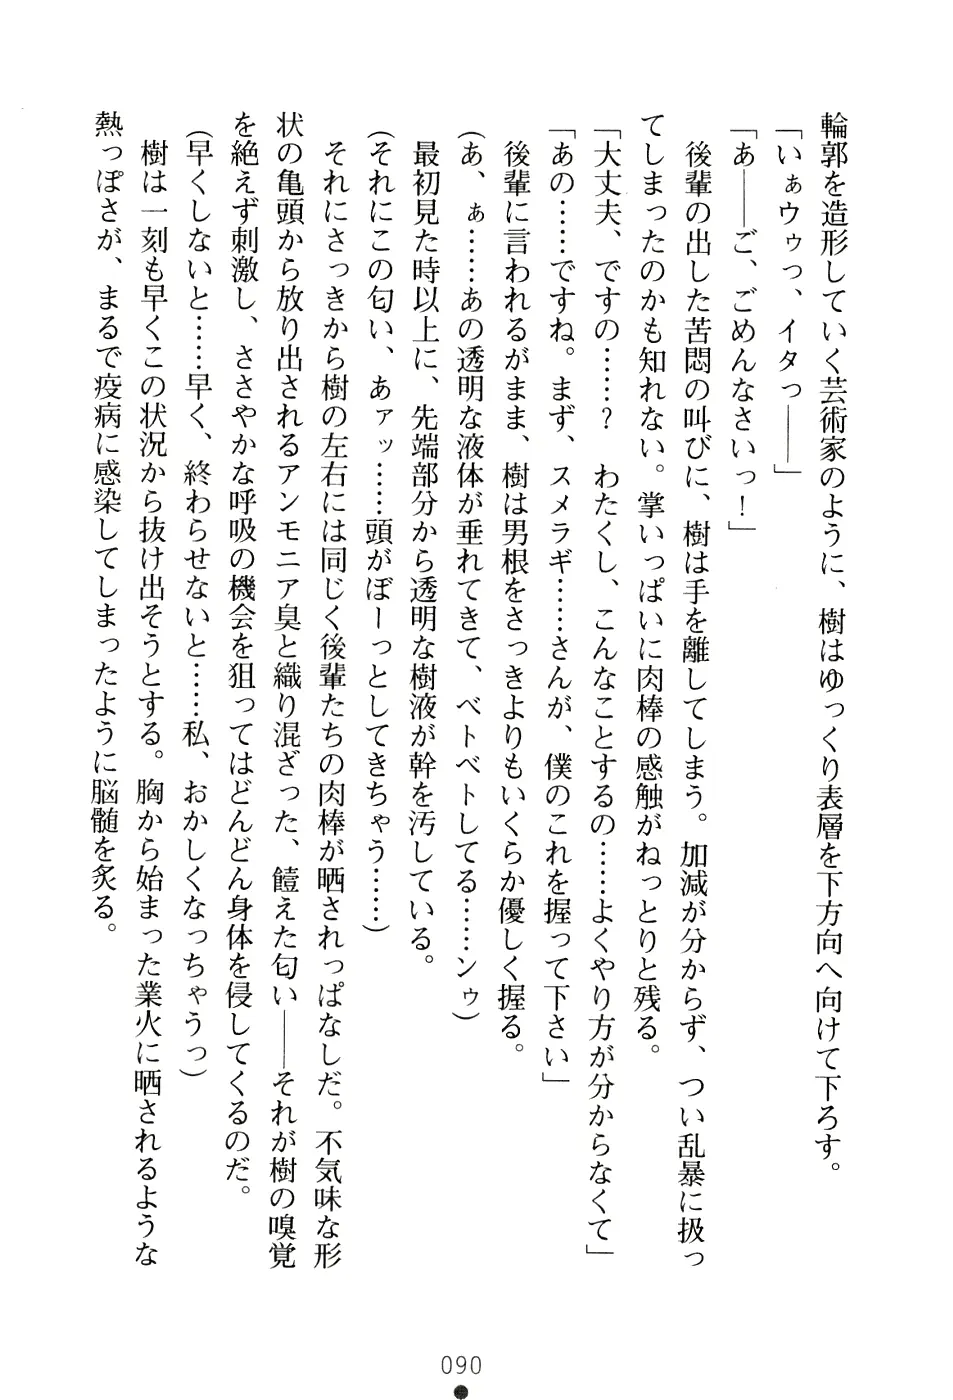 輪郭を造形していく芸術家のように、樹はゆっくり表層を下方向へ向けて下ろす。
「いぁウゥっ、イタっ――」
「あ――ご、ごめんなさいっ！」
後輩の出した苦悶の叫びに、樹は手を離してしまう。加減が分からず、つい乱暴に扱っ
てしまったのかも知れない。掌いっぱいに肉棒の感触がねっとりと残る。
「大丈夫、ですの……？　わたくし、こんなことするの……よくやり方が分からなくて」
「あの……ですね。まず、スメラギ……さんが、僕のこれを握って下さい」
後輩に言われるがまま、樹は男根をさっきよりもいくらか優しく握る。
（あ、ぁ……あの透明な液体が垂れてきて、ベトベトしてる……ンゥ）
最初見た時以上に、先端部分から透明な樹液が幹を汚している。
（それにこの匂い、あァッ……頭がぼーっとしてきちゃう……）
それにさっきから樹の左右には同じく後輩たちの肉棒が晒されっぱなしだ。不気味な形
状の亀頭から放り出されるアンモニア臭と織り混ざった、饐えた匂い――それが樹の嗅覚
を絶えず刺激し、ささやかな呼吸の機会を狙ってはどんどん身体を侵してくるのだ。
（早くしないと……早く、終わらせないと……私、おかしくなっちゃうっ）
樹は一刻も早くこの状況から抜け出そうとする。胸から始まった業火に晒されるような
熱っぽさが、まるで疫病に感染してしまったように脳髄を炙る。
090